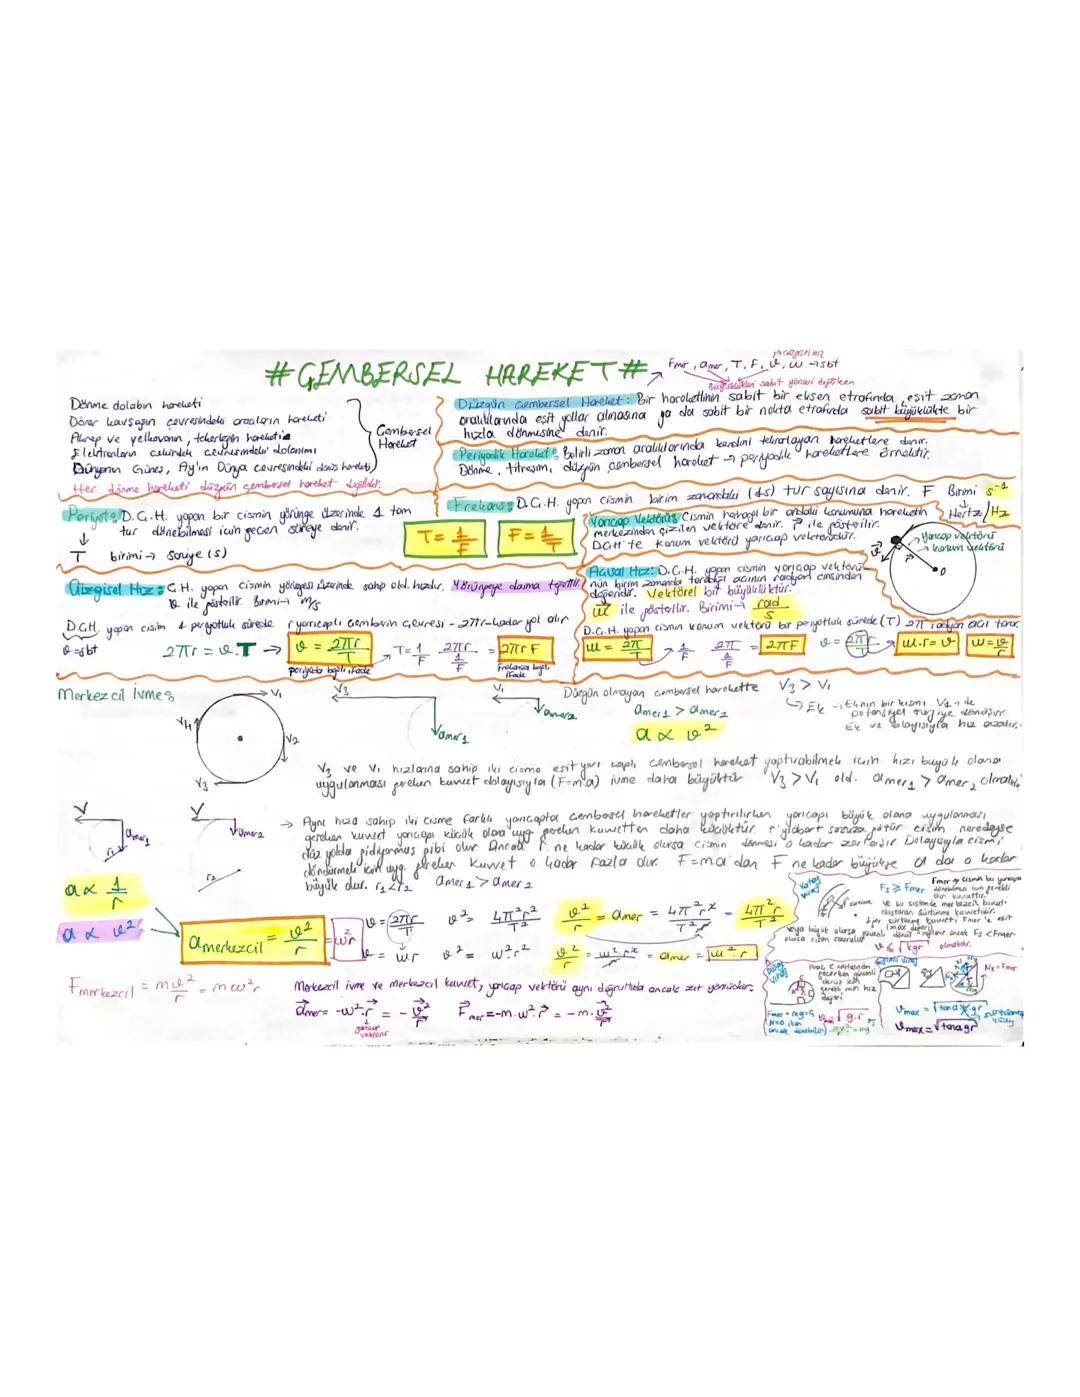 #ÇEMBERSEL HAREKET#
çizgisel hız
Fmer, amer, T, F, υ, ω → sbt
Büyüklükleri sabit yönleri değişken
Dönme dolabın hareketi
Döner kavşağın çevresindeki araçların hareketi
Akrep ve yelkovanın, tekerleğin hareketi
Elektronların çekirdek çevresindeki dolanımı
Dünyanın Güneş, Ay'ın Dünya çevresindeki dönüş hareketi
Çembersel Hareket
Her dönme hareketi düzgün çembersel hareket değildir.
Düzgün Çembersel Hareket: Bir hareketlinin sabit bir eksen etrafında, eşit zaman
aralıklarında eşit yollar almasına ya da sabit bir nokta etrafında sabit büyüklükte bir
hızla dönmesine denir.
Periyodik Hareket: Belirli zaman aralıklarında kendini tekrarlayan hareketlere denir.
Dönme, titreşim, düzgün çembersel hareket → periyodik hareketlere örnektir.
Periyot: D.Ç.H. yapan bir cismin yörünge üzerinde 1 tam
tur dönebilmesi için geçen süreye denir.
↓
T birimi → Saniye (s)
T = 1/F
F = 1/T
Frekans: D.Ç.H. yapan cismin birim zamandaki (1s) tur sayısına denir. F Birimi s⁻¹
Hertz/Hz
Yarıçap Vektörü: Cismin herhangi bir andaki konumuna hareketin
merkezinden çizilen vektöre denir. r⃗ ile gösterilir.
D.Ç.H'te konum vektörü yarıçap vektörüdür.
Yarıçap vektörü
konum vektörü
υ⃗
r⃗
O
Çizgisel Hız: Ç.H. yapan cismin yörüngesi üzerinde sahip old. hızdır. Yörüngeye daima teğettir.
υ ile gösterilir. Birimi → m/s
D.Ç.H yapan cisim 1 periyotluk sürede r yarıçaplı çemberin çevresi - 2πr - kadar yol alır
υ = sbt
2πr = υ.T → υ = 2πr/T → T = 1/F 2πr/(1/F) = 2πrF
periyoda bağlı ifade
frekansa bağlı ifade
Açısal Hız: D.Ç.H. yapan cismin yarıçap vektörü-
nün birim zamanda taradığı açının radyan cinsinden
değeridir. Vektörel bir büyüklüktür.
ω⃗ ile gösterilir. Birimi → rad/s
D.Ç.H. yapan cismin konum vektörü bir periyotluk sürede (T) 2π radyan açı tarar.
ω = 2π/T → 1/F 2π/(1/F) = 2πF υ = 2πr/T → ω.r = υ ω = υ/r
Merkezcil İvme:
V₁
V₂
V₃
V₄
V₃
amer₁
V₁
amer₂
Düzgün olmayan çembersel harekette V₃ > V₁
amer₁ > amer₂
a ∝ υ²
Ek → Ek'nın bir kısmı V₁'de
potansiyel enerjiye dönüşür
Ek ve dolayısıyla hız azalır.
V₃ ve V₁ hızlarına sahip iki cisme eşit yarıçaplı çembersel hareket yaptırabilmek için hızı büyük olana
uygulanması gereken kuvvet dolayısıyla (F=m.a) ivme daha büyüktür V₃ > V₁ old. amer₁ > amer₂ olmalıdır
V
amer₁
r₁
V
amer₂
r₂
→ Aynı hıza sahip iki cisme farklı yarıçapta çembersel hareketler yaptırılırken yarıçapı büyük olana uygulanması
gereken kuvvet yarıçapı küçük olana uyg. gereken kuvvetten daha küçüktür. r'yi sonsuza götür cisim neredeyse
düz yolda gidiyormuş gibi olur. Ancak r ne kadar küçük olursa cismin dönmesi o kadar zorlaşır. Dolayısıyla cismi
döndürmek için uyg. gereken kuvvet o kadar fazla olur. F = m.a'dan F ne kadar büyükse a da o kadar
büyüktür. r₁<r₂ amer₁ > amer₂
a ∝ 1/r
a ∝ υ²
amerkezcil = υ²/r = ω²r
υ = 2πr/T υ² = 4π²r²/T² υ²/r = amer = 4π²r²/T².r = 4π²r/T²
υ = ω.r υ² = ω².r² υ²/r = ω².r²/r = amer = ω².r
Fmerkezcil = mυ²/r = mω²r
Merkezcil ivme ve merkezcil kuvvet, yarıçap vektörü aynı doğrultuda ancak zıt yönlüdür.
a⃗mer = -ω².r⃗ = -υ²/r
yarıçap vektörü
F⃗mer = -m.ω².r⃗ = -m.υ²/r
Yatay viraj
Fs ≥ Fmer
Fmer → cismin bu yarıçapta
dönebilmesi için gerekli
olan kuvvettir.
ve bu sistemde merkezcil kuvveti
oluşturan sürtünme kuvvetidir.
Eğer sürtünme kuvveti Fmer'e eşit
veya büyük olursa güvenli dönüş sağlanır ancak Fs < Fmer
olursa cisim savrulur
υ ≤ √kgr olmalıdır.
Fmer = mg = G
υmax = √g.r
Nx = Fmer
υmax = √tanα.gr